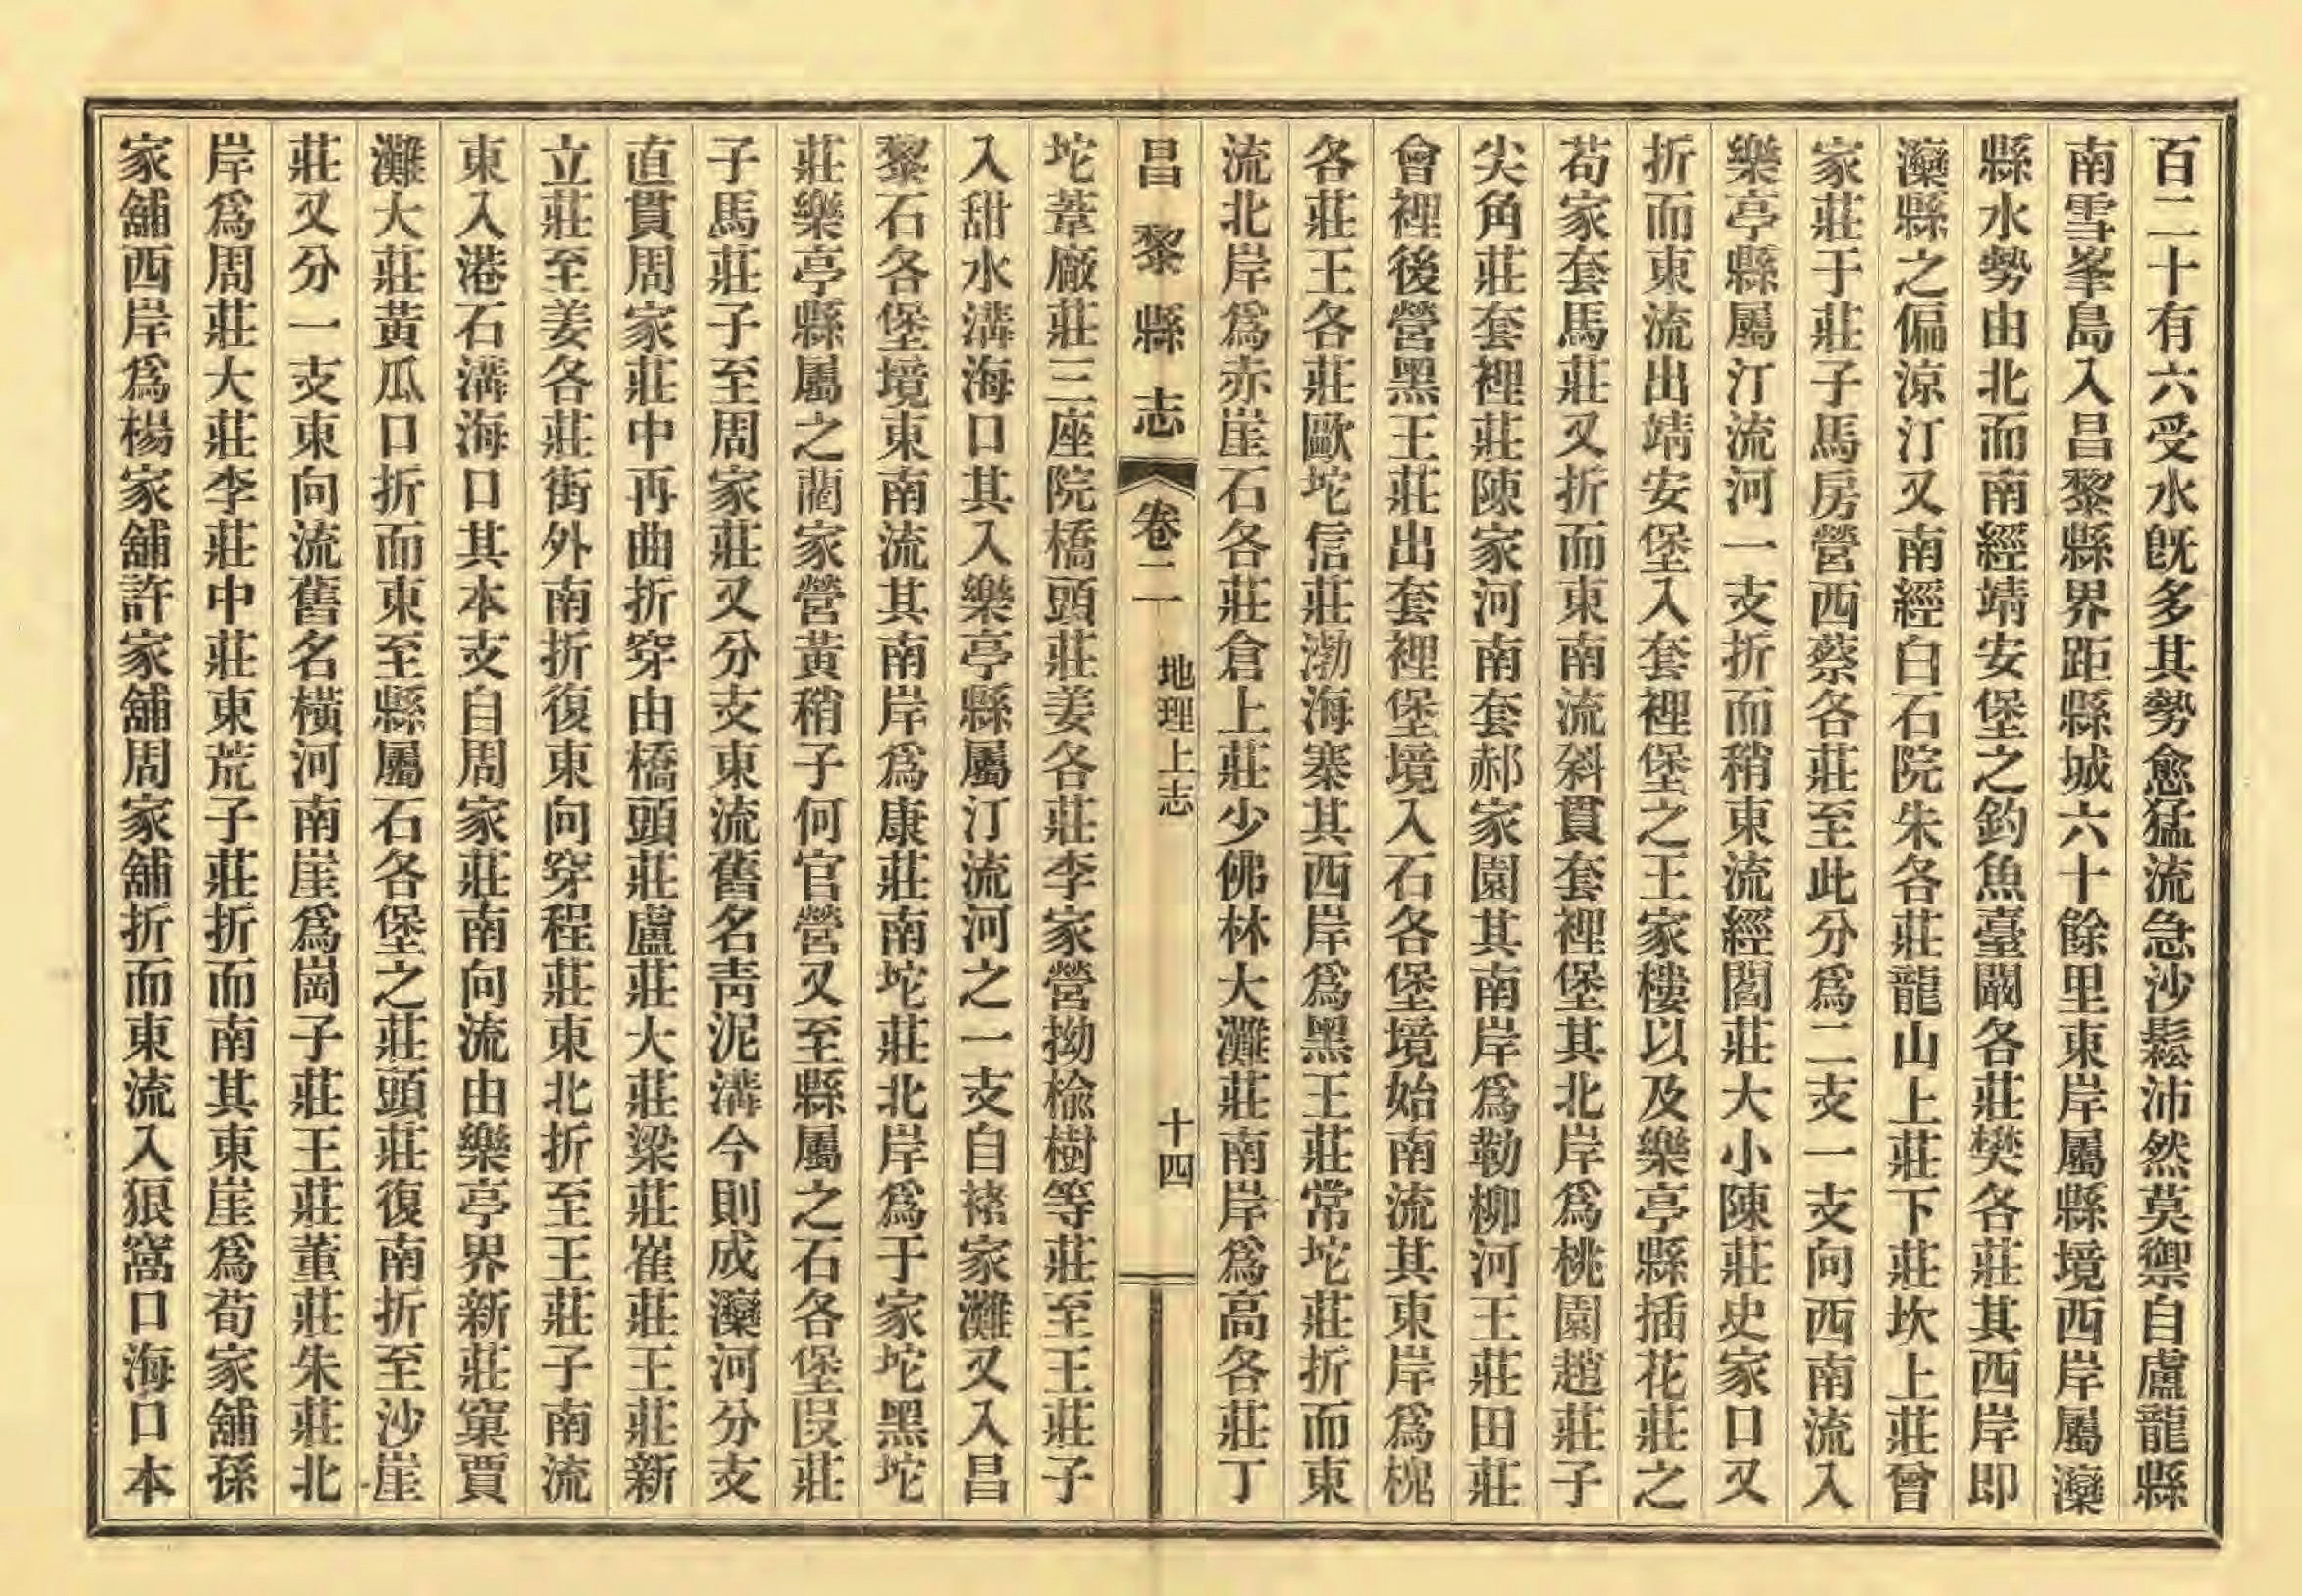 百二十有六受水旣多其勢愈猛流急沙鬆沛然莫禦自盧龍縣
南雪峯島入昌黎縣界距縣城六十餘里東岸屬縣境西岸屬灤
縣水勢由北而南經靖安堡之釣魚臺闞各莊樊各莊其西岸即
灤縣之偏涼汀又南經白石院朱各莊龍山上莊下莊坎上莊曾
家莊于莊子馬房營西蔡各莊至此分爲二支一支向西南流入
樂亭縣屬汀流河一支折而稍東流經閻莊大小陳莊史家口又
折而東流出靖安堡入套裡堡之王家樓以及樂亭縣插花莊之
苟家套馬莊又折而東南流斜貫套裡堡其北岸爲桃園趙莊子
尖角莊套裡莊陳家河南套郝家園其南岸爲勒柳河王莊田莊
會裡後營黑王莊出套裡堡境入石各堡境始南流其東岸爲槐
各莊王各莊歐坨信莊渤海寨其西岸爲黑王莊常坨莊折而東
流北岸爲赤崖石各莊倉上莊少佛林大灘莊南岸爲高各莊丁
昌黎縣志 卷二 地理上志 十四
坨葦廠莊三座院橋頭莊姜各莊李家營拗榆樹等莊至王莊子
入甜水溝海口其入樂亭縣屬汀流河之一支自嵇家灘又入昌
黎石各堡境東南流其南岸爲康莊南坨莊北岸爲于家坨黑坨
莊樂亭縣屬之藺家營黃稍子何官營又至縣屬之石各堡叚莊
子馬莊子至周家莊又分支東流舊名靑泥溝今則成灤河分支
直貫周家莊中再曲折穿由橋頭莊盧莊大莊梁莊崔莊王莊新
立莊至姜各莊街外南折復東向穿程莊東北折至王莊子南流
東入港石溝海口其本支自周家莊南向流由樂亭界新莊窠賈
灘大莊黃瓜口折而東至縣屬石各堡之莊頭莊復南折至沙崖
莊又分一支東向流舊名橫河南崖爲崗子莊王莊董莊朱莊北
岸爲周莊大莊李莊中莊東荒子莊折而南其東崖爲荀家舖孫
家舖西岸爲楊家舖許家舖周家舖折而東流入狼窩口海口本